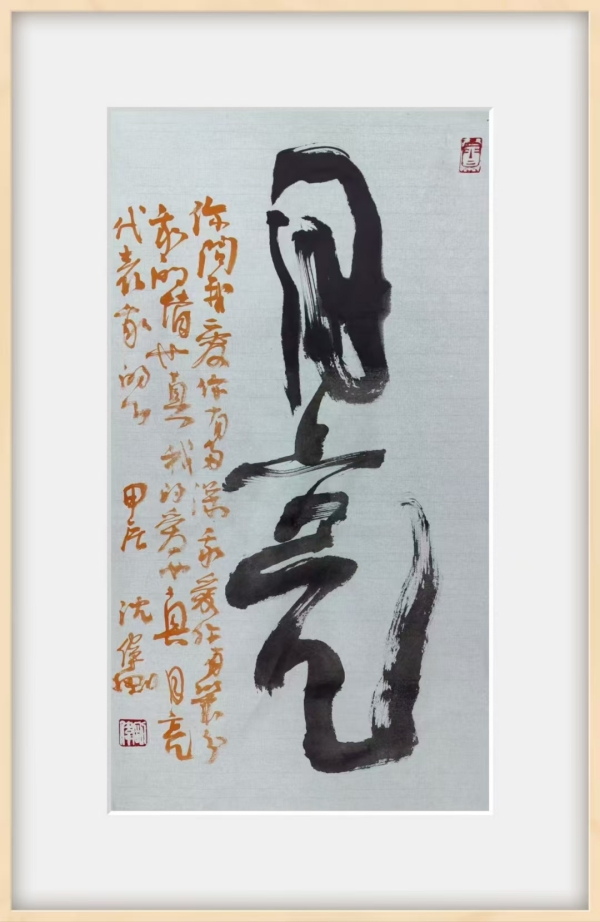 月亮
你问我爱你有多深我爱你有几分
我的情也真我的爱也真月亮
代表我的心 甲辰 沈伟